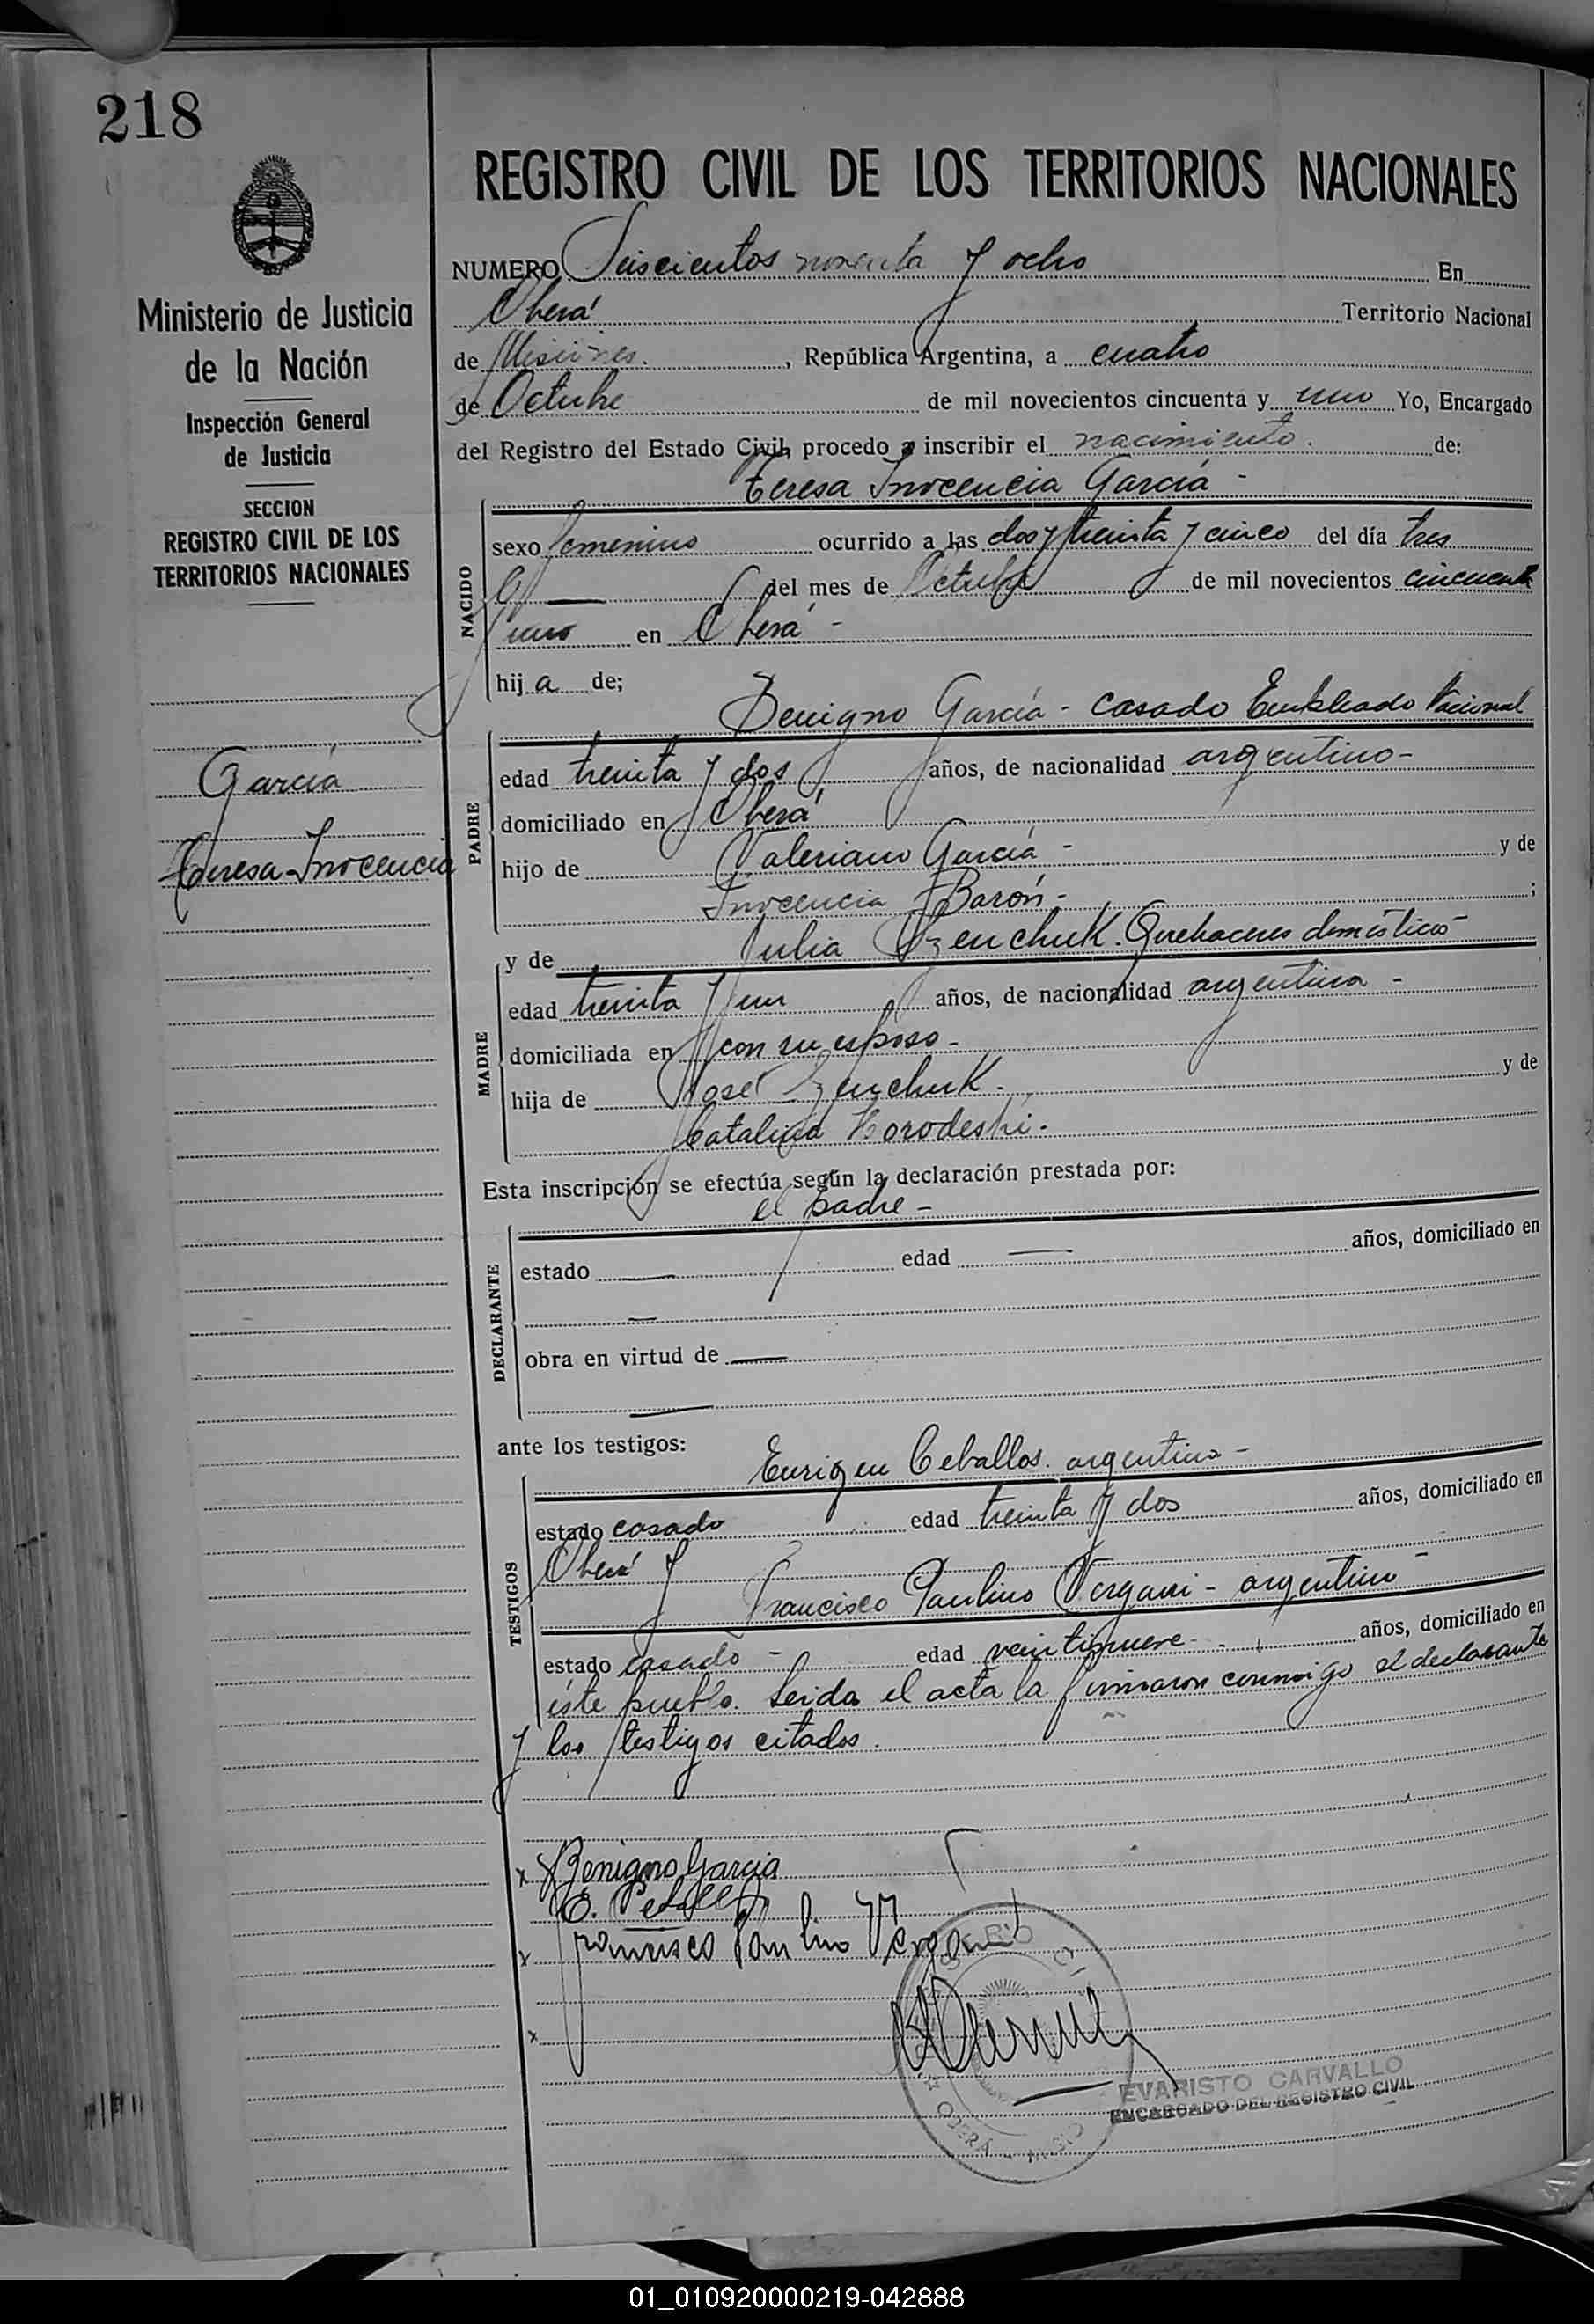 218
Ministerio de Justicia
de la Nación
Inspección General
de Justicia
SECCION
REGISTRO CIVIL DE LOS
TERRITORIOS NACIONALES
García
Teresa Inocencia
REGISTRO CIVIL DE LOS TERRITORIOS NACIONALES
NUMERO Seiscientos noventa y ocho En
Oberá Territorio Nacional
de Misiones, República Argentina, a cuatro
de Octubre de mil novecientos cincuenta y uno Yo, Encargado
del Registro del Estado Civil, procedo a inscribir el nacimiento. de:
Teresa Inocencia García -
NACIDO
sexo femenino ocurrido a las dos y treinta y cinco del día tres
— del mes de Octubre de mil novecientos cincuenta
y uno en Oberá -
hija de;
Benigno García - casado Empleado Nacional
PADRE
edad treinta y dos años, de nacionalidad argentino -
domiciliado en Oberá
hijo de Valeriano García - y de
Inocencia Barón - ;
y de Julia Quehaceres domésticos -
MADRE
edad treinta y un años, de nacionalidad argentina -
domiciliada en con su esposo -
hija de José y de
Catalina Horodeski.
Esta inscripción se efectúa según la declaración prestada por:
el padre -
DECLARANTE
estado — edad — años, domiciliado en
—
obra en virtud de —
—
ante los testigos:
Ceballos. argentino -
TESTIGOS
estado casado edad treinta y dos años, domiciliado en
Oberá y
Francisco Paulino Vergani - argentino -
estado casado - edad veintinueve - años, domiciliado en
éste pueblo. Leida el acta la firmaron conmigo el declarante
y los testigos citados.
x Benigno García
E.
x Francisco Paulino Vergani
x
OBERÁ
EVARISTO CARVALLO
ENCARGADO DEL REGISTRO CIVIL
01_010920000219-042888